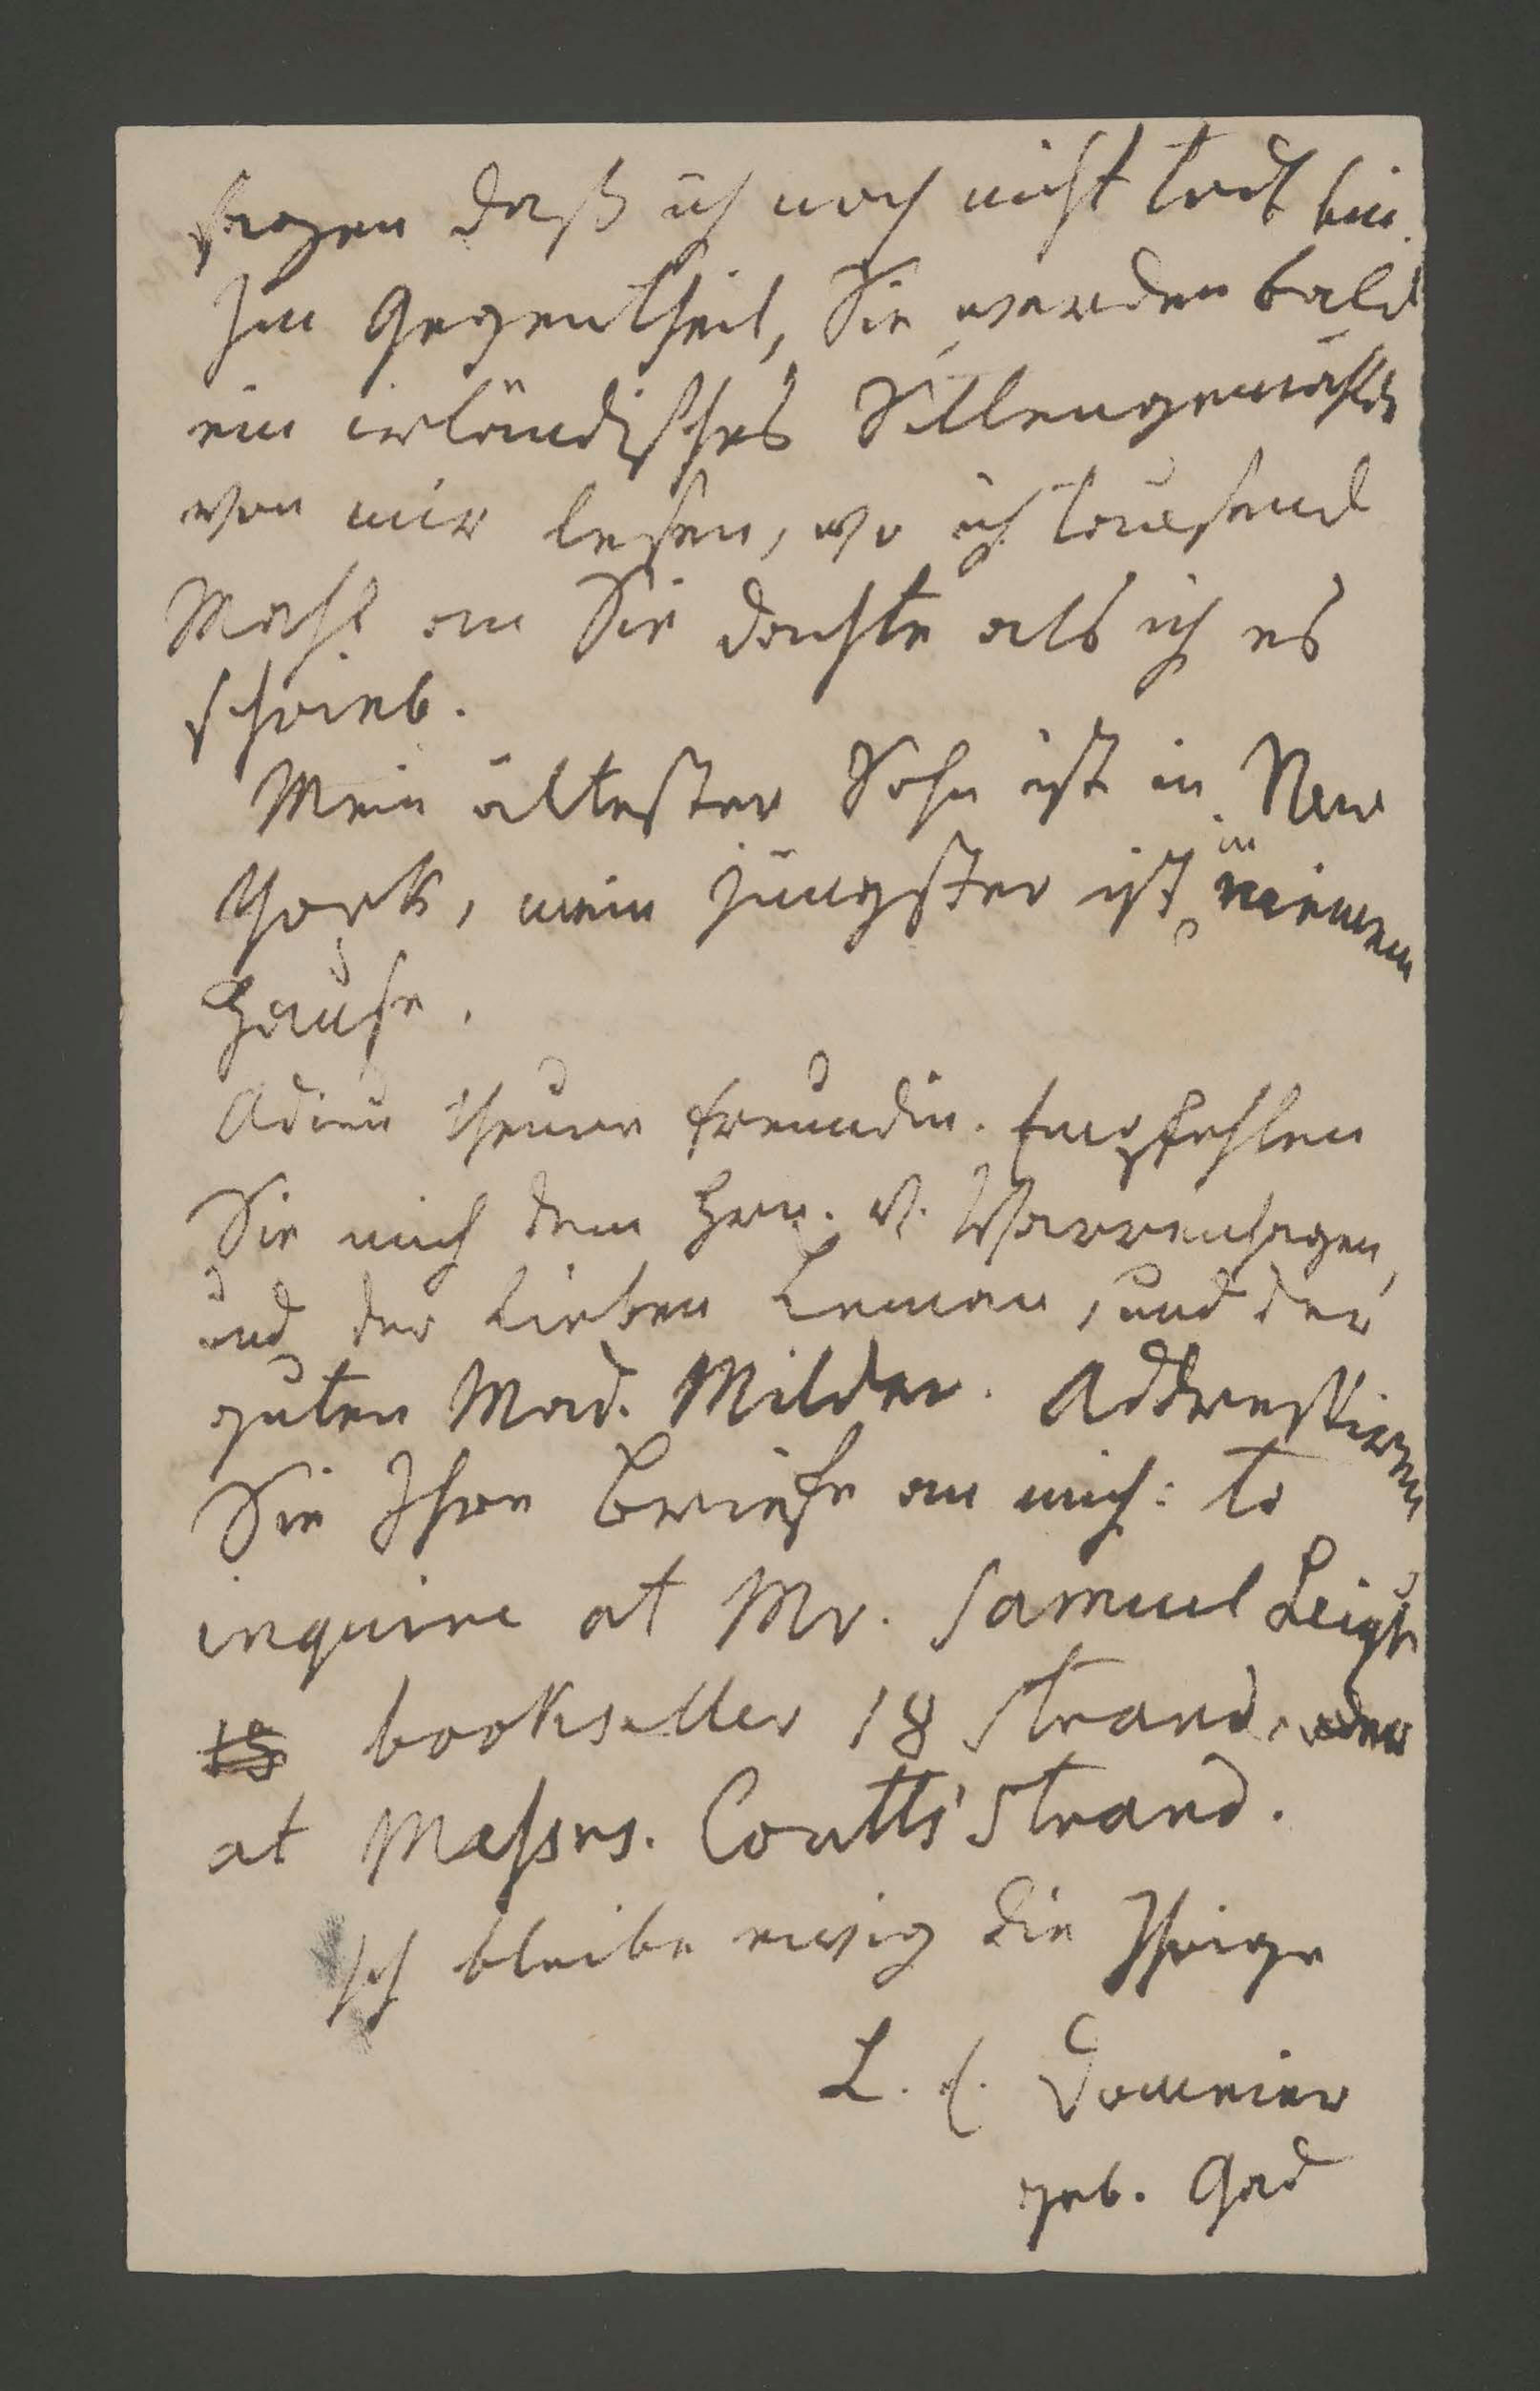 sagen daß ich noch nicht todt bin.
Im Gegentheil, Sie werden bald
ein irländisches Sittengemählde
von mir lesen, wo ich tausend
Mahl an Sie dachte als ich es
schrieb.
Mein ältester Sohn ist in New
York, mein jüngster ist in meinem
Hause.
Adieu theure Freundin. Empfehlen
Sie mich dem Hrn. v. Varrenhagen,
und der lieben Leman, und der
guten Mad. Milder. Addressiren
Sie Ihre Briefe an mich: to
inquire at Mr. Samuel Leigh
18 bookseller 18 Strand. oder
at Messrs. Coutts' Strand.
Ich bleibe ewig die Ihrige
L. E. Domeier
geb. Gad